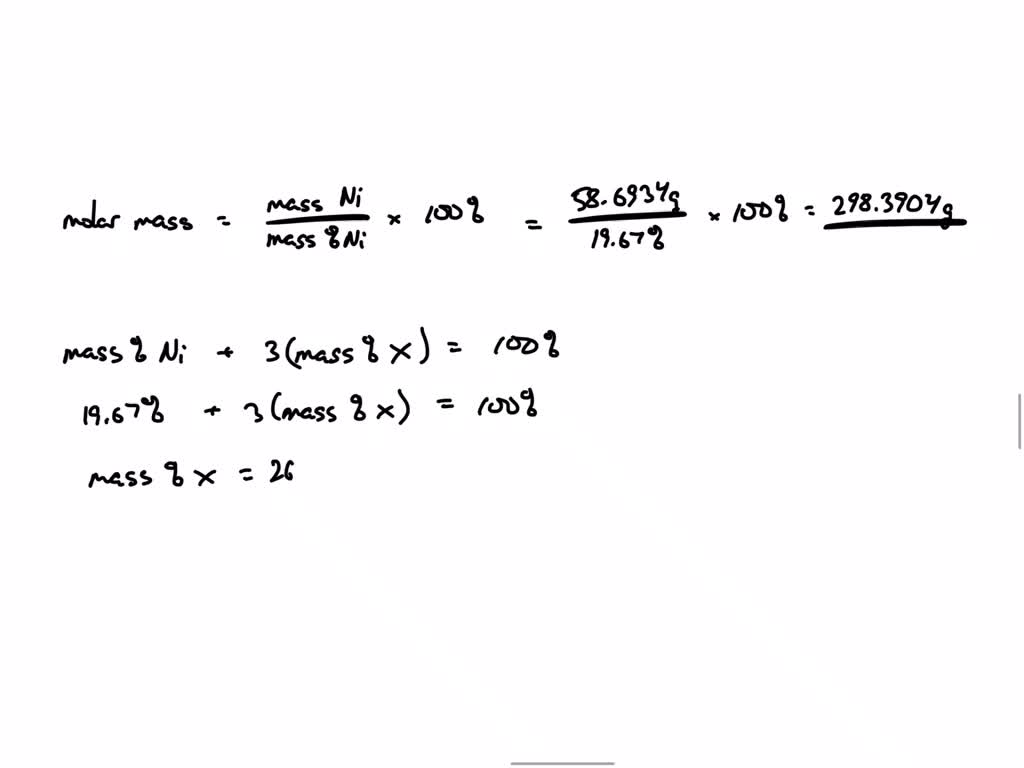 molar mass = mass Ni / mass % Ni × 100% = 58.6934g / 19.67% × 100% = 298.3904g
mass % Ni + 3(mass % X) = 100%
19.67% + 3(mass % X) = 100%
mass % X = 26